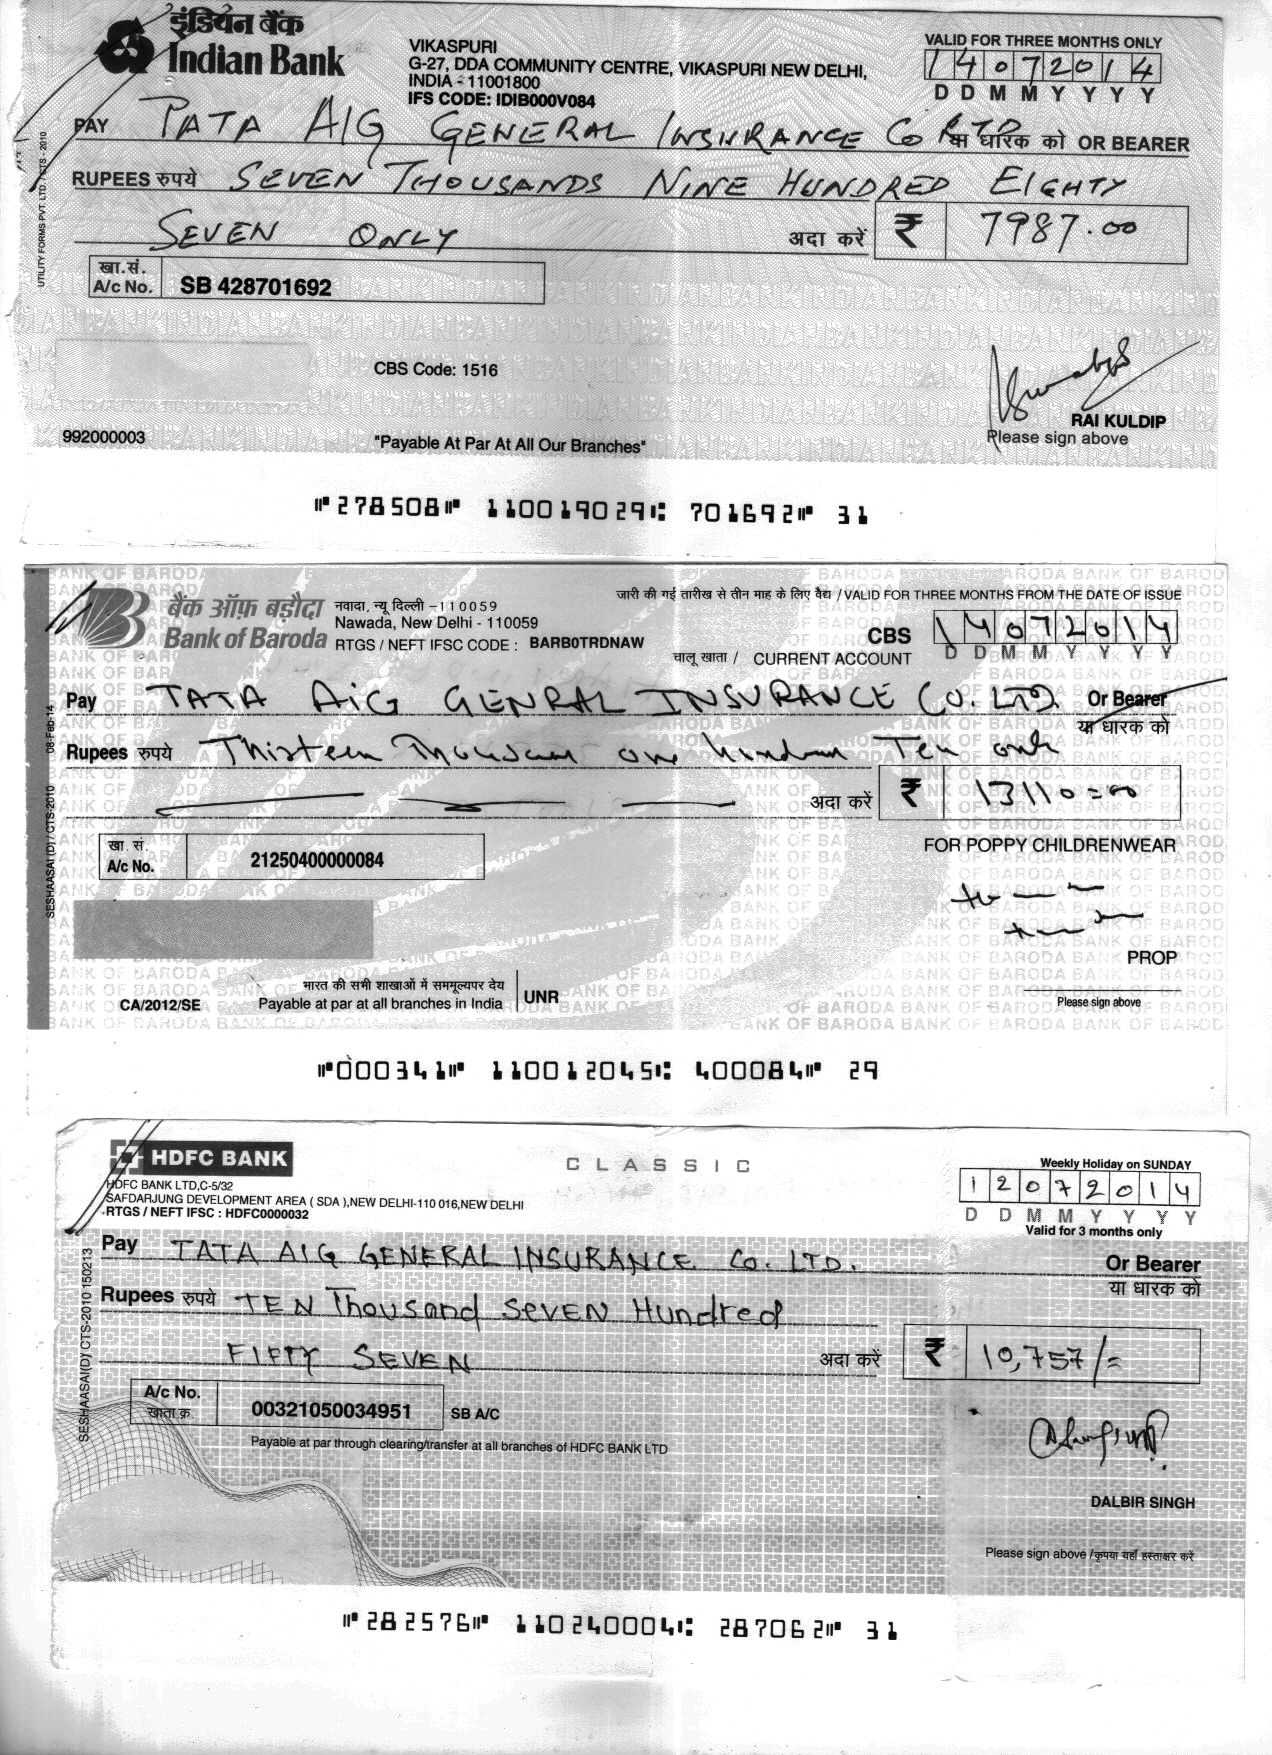 इंडियन बैंक
Indian Bank
VIKASPURI
G-27, DDA COMMUNITY CENTRE, VIKASPURI NEW DELHI,
INDIA - 11001800
IFS CODE: IDIB000V084
VALID FOR THREE MONTHS ONLY
14072014
D D M M Y Y Y Y
PAY TATA AIG GENERAL INSURANCE Co LTD या धारक को OR BEARER
RUPEES रुपये SEVEN THOUSANDS NINE HUNDRED EIGHTY
SEVEN ONLY अदा करें ₹ 7987.00
खा.सं.
A/c No. SB 428701692
UTILITY FORMS PVT. LTD. / CTS - 2010
CBS Code: 1516
RAI KULDIP
Please sign above
992000003
"Payable At Par At All Our Branches"
⑈278508⑈ 110019029⑆ 701692⑈ 31
बैंक ऑफ़ बड़ौदा
Bank of Baroda
नवादा, न्यू दिल्ली -110059
Nawada, New Delhi - 110059
RTGS / NEFT IFSC CODE : BARB0TRDNAW
जारी की गई तारीख से तीन माह के लिए वैध / VALID FOR THREE MONTHS FROM THE DATE OF ISSUE
CBS 14072014
चालू खाता / CURRENT ACCOUNT D D M M Y Y Y Y
Pay TATA AiG GENRAL INSURANCE Co. LTD. Or Bearer
या धारक को
Rupees रुपये Thirteen Thousand one hundred Ten only
अदा करें ₹ 13110=00
खा. सं.
A/c No. 21250400000084
FOR POPPY CHILDRENWEAR
SESHAASAI (D) / CTS-2010 08-Feb-14
PROP
Please sign above
CA/2012/SE
भारत की सभी शाखाओं में सममूल्यपर देय
Payable at par at all branches in India
UNR
⑈000341⑈ 110012045⑆ 400084⑈ 29
HDFC BANK
HDFC BANK LTD,C-5/32
SAFDARJUNG DEVELOPMENT AREA ( SDA ),NEW DELHI-110 016,NEW DELHI
RTGS / NEFT IFSC : HDFC0000032
CLASSIC
Weekly Holiday on SUNDAY
12072014
D D M M Y Y Y Y
Valid for 3 months only
Pay TATA AIG GENERAL INSURANCE Co. LTD. Or Bearer
या धारक को
Rupees रुपये TEN Thousand SEVEN Hundred
FIFTY SEVEN अदा करें ₹ 10,757/=
A/c No.
खाता क्र. 00321050034951 SB A/C
Payable at par through clearing/transfer at all branches of HDFC BANK LTD
SESHAASAI(D)/ CTS-2010 150213
DALBIR SINGH
Please sign above /कृपया यहाँ हस्ताक्षर करें
⑈282576⑈ 110240004⑆ 287062⑈ 31